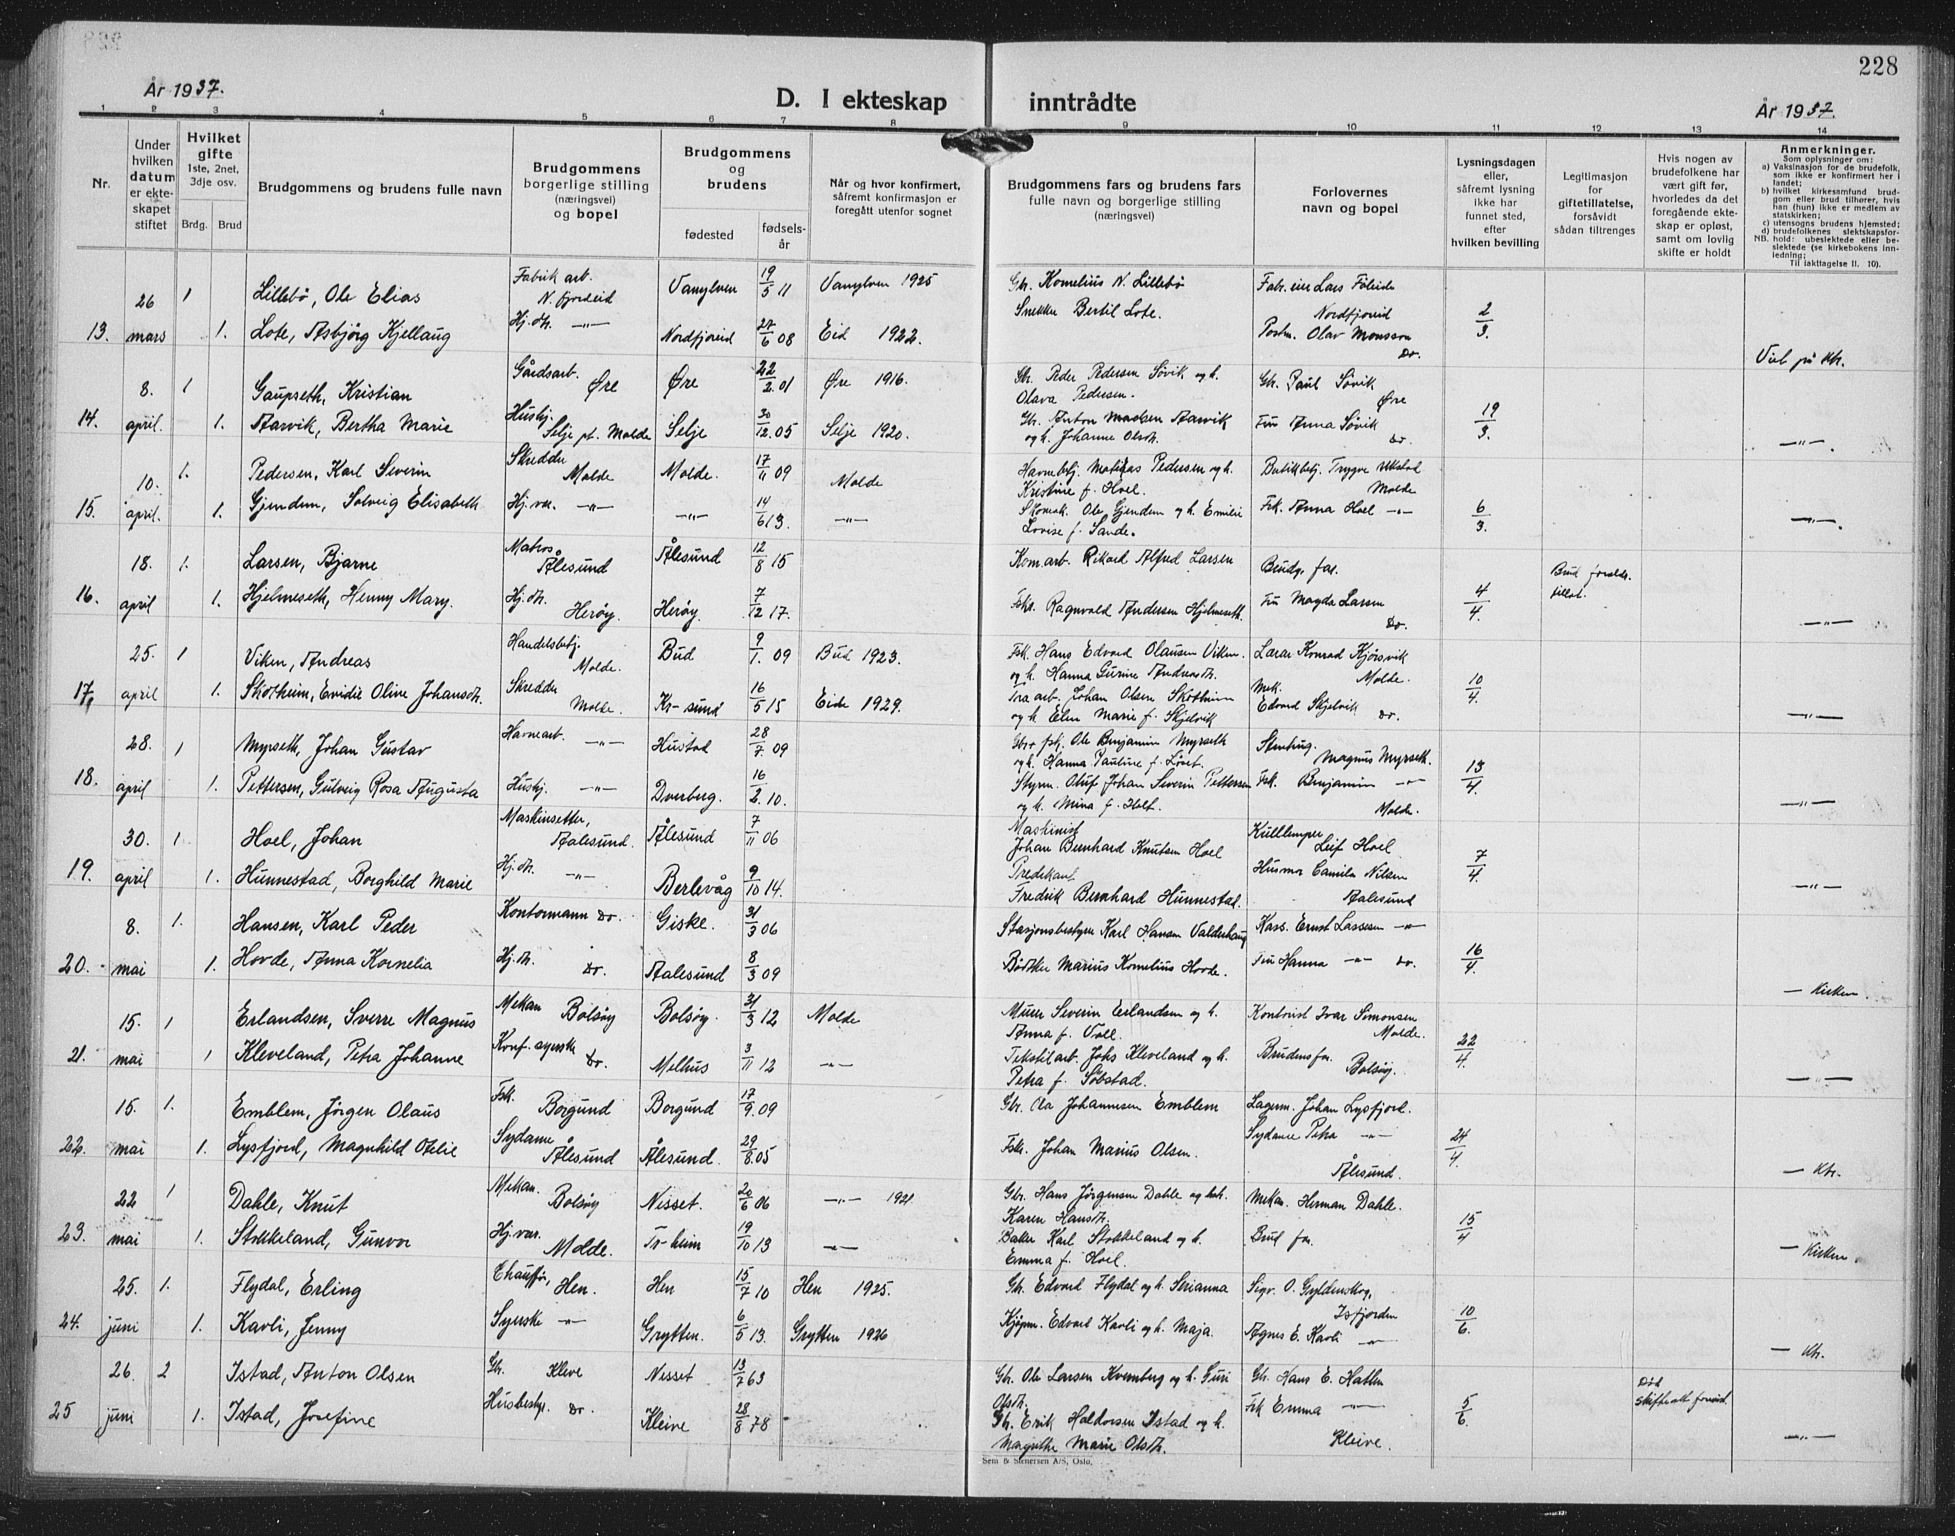 228
År 1937.
D. I ekteskap inntrådte
År 1937.
1 2 3 4 5 6 7 8 9 10 11 12 13 14
Nr.
Under hvilken datum er ekteskapet stiftet
Hvilket gifte
1ste, 2net, 3dje osv.
Brdg. Brud
Brudgommens og brudens fulle navn
Brudgommens borgerlige stilling (næringsvei) og bopel
Brudgommens og brudens
fødested
fødselsår
Når og hvor konfirmert, såfremt konfirmasjon er foregått utenfor sognet
Brudgommens fars og brudens fars fulle navn og borgerlige stilling (næringsvei)
Forlovernes navn og bopel
Lysningsdagen eller, såfremt lysning ikke har funnet sted, efter hvilken bevilling
Legitimasjon for giftetillatelse, forsåvidt sådan tiltrenges
Hvis nogen av brudefolkene har vært gift før, hvorledes da det foregående ekteskap er opløst, samt om lovlig skifte er holdt
Anmerkninger.
Som oplysninger om:
a) Vaksinasjon for de brudefolk, som ikke er konfirmert her i landet;
b) hvilket kirkesamfund brudgom eller brud tilhører, hvis han (hun) ikke er medlem av statskirken;
c) utensogns brudens hjemsted;
d) brudefolkenes slektskapsforhold: ubeslektede eller beslektede (se kirkebokens innledning;
NB.
Til iakttagelse II. 10).
26 1 Lillebö, Ole Elias Fabrik arb. N. fjordeid Vanylven 19/5 11 Vanylven 1925 Gbr. Kornelius N. Lillebö Fabr. eier Lars Föleide Nordfjoreid
13. mars 1. Lote, Asbjörg Kjellaug Hj. dt. —"— Nordfjoreid 27/6 08 Eid 1922. Snekker Bertil Lote. Postm. Olav Monsson Do. 2/3. Viet på ktr.
8. 1 Gaupseth, Kristian Gårdsarb. Øre Øre 22/2. 01 Øre 1916. Gbr. Peder Pedersen Sövik og h. Olava Pedersen. Gbr. Paul Sövik Øre
14. april. 1. Aarvik, Bertha Marie Hushj. Selje pt. Molde Selje 30/12. 05 Selje 1920. Gbr. Anton Madsen Aarvik og h. Johanne Olsdt. Fru Anna Sövik do. 19/3. —"—
10. 1. Pedersen, Karl Severin Skredder Molde Molde. 17/11 09 Molde Havnebetj. Matias Pedersen og h. Kristine f. Hoel. Butikkbetj. Trygve Molde
15. april. 1. Gjendem, Solveig Elisabeth Hj. vær. —"— —"— 14/6 13. —"— Skomak. Ole Gjendem og h. Emilie Lovise f. Sande. Frk. Anna Hoel —"— 6/3. —"—.
18. 1. Larsen, Bjarne Matros Ålesund Ålesund 12/8 15 Kom arb. Rikard Alfred Larsen Brudg. far. Brud foreldr. tillat.
16. april 1. Hjelmeseth, Henny Mary. Hj. dt. Herøy. Herøy 7/12 17. Fskr. Ragnvald Andersen Hjelmeseth. Fru Magda Larsen Do. 4/4. —"—
25. 1 Viken, Andreas Handelsbetj. Molde. Bud 9/1. 09 Bud 1923. Fsk. Hans Edvard Olausen Viken. og h. Hanna Gurine Andreasdt. Lærer Konrad Kjörsvik Molde.
17. april 1. Skotheim, Evidie Oline Johansdt. Skredder Molde. Kr-sund 16/5 15 Eide 1929. Johan Olsen Skotheim og h. Elen Marie f. Skjelvik Mek. Edvard Skjelvik do. 10/4. —"—
28. 1 Myrseth, Johan Gustav Havnearb. —"— Hustad 28/7. 09 Gbr. fsk. Ole Benjamin Myrseth og h. Hanna Pauline f. Lövet. Magnus Myrseth.
18. april 1. Pettersen, Gulveig Rosa Augusta Hushj. —"— Dverberg. 16/2. 10. Styrm. Oluf Johan Severin Pettersen og h. Mina f. Holt. Fsk. Benjamin —"— Molde. 13/4 —"—
30. 1. Hoel, Johan Maskinsetter, Aalesund. Ålesund 7/11 06 Maskinist Johan Bernhard Knutsen Hoel Kulllemper Leif Hoel
19. april 1. Hunnestad, Borghild Marie Hj. dt. —"— Berlevåg 9/10 14. Predikant Fredrik Bernhard Hunnestad. Husmor Camilla Nilsen Aalesund 7/4. —"—
8. 1. Hansen, Karl Peder Kontormann do. Giske. 31/3 06 Stasjonsbestyrer Karl Hansen Valderhaug Kass. Ernst Lassesen —"—
20. mai 1. Hovde, Anna Kornelia Hj. dt. Do. Aalesund 8/3 09 Bödtker Marius Kornelius Hovde. Fru Hanna —"— do. 16/4. — Kirken
15. 1 Erlandsen, Sverre Magnus Mekan Bolsöy Bolsöy. 31/3 12 Molde Murer Severin Erlandsen og h. Anna f. Voll. Kontorist Ivar Simonsen Molde.
21. mai 1 Kleveland, Petra Johanne Konf. syerske Do. Melhus 3/11 12 —"— Tekstilarb. Johs Kleveland og h. Petra f. Söbstad. Brudens far. Bolsöy. 22/4. —"—
15. 1. Emblem, Jörgen Olaus Fsk. Borgund Borgund 17/9. 09 Gbr. Ola Johannesen Emblem Lagerm. Johan Lysfjord.
22. mai 1. Lysfjord, Magnhild Otelie Sydame Ålesund Ålesund. 29/8. 05 Fskr. Johan Marius Olsen. Sydame Petra —"— Ålesund. 24/4. — Ktr.
22 1 Dahle, Knut Mekan. Bolsöy Nesset. 20/6 06 —"— 1921 Gbr. Hans Jörgensen Dahle og h. Karen Hansdt. Mekan. Herman Dahle.
23. mai 1. Stokkeland, Gunvor Hj. vær. Molde. Tr-heim 19/10 13 —"— Baker Karl Stokkeland og h. Emma f. Hoel. Brud far. 15/4 — Kirken.
25. 1. Flydal, Erling Chauffør, Hen. Hen 15/7 10 Hen 1925. Gbr. Edvard Flydal og h. Serianna Sigv. O. Gyldenskog, Isfjorden
24. juni 1. Kavli, Jenny Syerske —"— Grytten. 6/5 13. Grytten 1926 Kjöpm. Edvard Kavli og h. Maja. Agnes E. Kavli —"— 10/6. — Ktr.
26. 2 Istad, Anton Olsen Gbr. Kleve Nesset 13/7 63 Gbr. Ole Larsen Kvernberg og h. Guri Olsdt. Gbr. Hans E. Hatlen Död
25 juni 1. Istad, Josefine Husbestyr. Do. Kleive 28/8 78 Gbr. Erik Haldorsen Istad og h. Magnhe Marie Olsdt. Frk Emma —"— Kleive. 5/6. —"—
Sem & Stenersen A/S, Oslo.